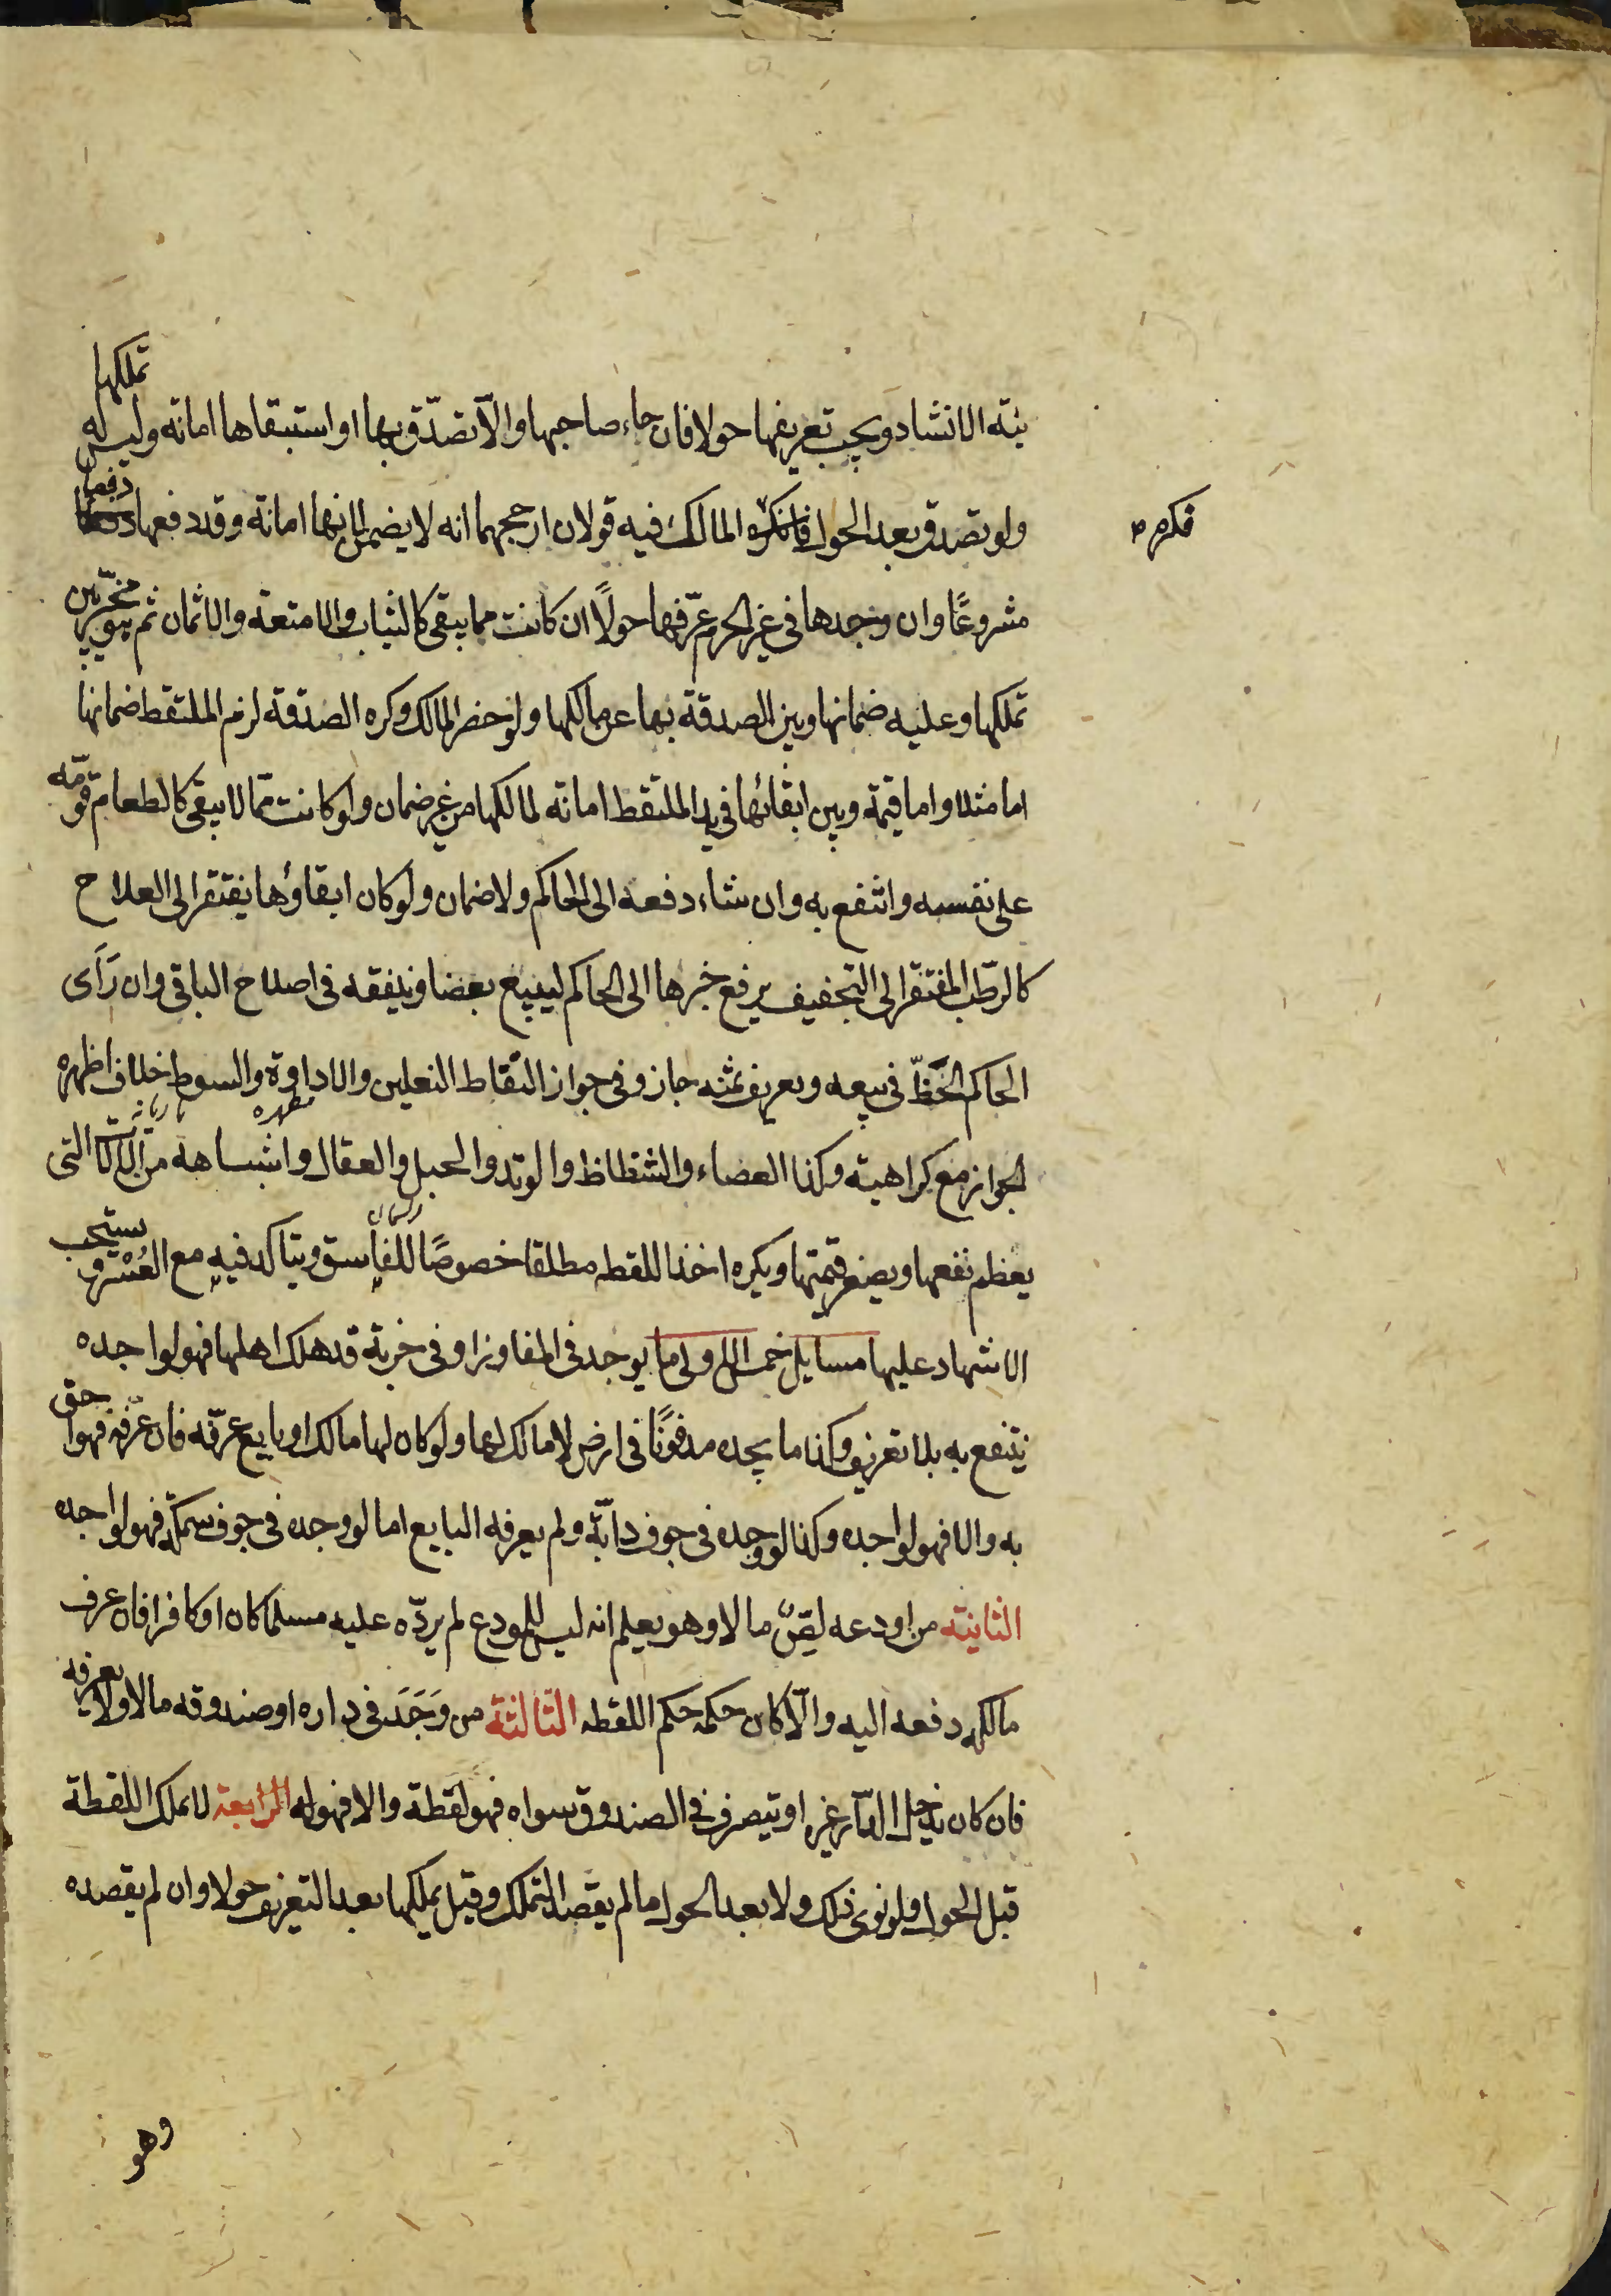 نيّة الانشاد ويجب تعريفها حولا فان جاء صاحبها والّا تصدّق بها او استبقاها امانة وليس له تملكها
ولو تصدق بعد الحول فانكره المالك فيه قولان ارجحهما انه لا يضمن لانها امانة وقد دفعها دفعا
فكره
مشروعًا وان وجدها في غير الحرم عرّفها حولًا ان كانت مما يبقى كالثياب والامتعة والاثمان ثم يتخيّر بين
تملكها وعليه ضمانها وبين الصدقة بها عن مالكها ولو حضر المالك وكره الصدقة لزم الملتقط ضمانها
اما مثلا واما قيمة وبين ابقائها في يد الملتقط امانة لمالكها من غير ضمان ولو كانت ممّا لا يبقى كالطعام قوّمه
على نفسه وانتفع به وان شاء دفعه الى الحاكم ولا ضمان ولو كان ابقاؤها يفتقر الى العلاج
كالرّطب المفتقر الى التجفيف يرفع خبرها الى الحاكم ليبيع بعضا وينفقه في اصلاح الباقي وان رَأى
الحاكم الحَظّ في بيعه وتعريف ثمنه جاز وفي جواز التقاط النعلين والاداوة والسوط خلاف اظهره
مطهره
الجواز مع كراهية وكذا العصاء والشظاظ والوتد والحبل والعقال واشباهه من الآلات التي
ريسمان
يعظم نفعها ويصغر قيمتها ويكره اخذ اللقطه مطلقا خصوصًا للفاسق ويتاكد فيه مع العُسْر ويستحب
الاشهاد عليها مسايل خمس الاولى ما يوجد في المفاوز او في خربة قد هلك اهلها فهو لواجده
ينتفع به بلا تعريف وكذا ما يجده مدفونًا في ارض لا مالك لها ولو كان لها مالك او بايع عرّفه فان عرّفه فهو احق
به والا فهو لواجده وكذا لو وجده في جوف دابّة ولم يعرفه البايع اما لو وجده في جوف سمكة فهو لواجده
الثانية من اودعه لصّ مالا وهو يعلم انه ليس للمودع لم يردّه عليه مسلما كان او كافرا فان عرف
مالكه دفعه اليه والّا كان حكمه حكم اللقطه الثالثة من وَجَدَ في داره او صندوقه مالا ولا يعرفه
فان كان يدخل الدّار غيره او يتصرف في الصندوق سواه فهو لقطة والا فهو له الرابعة لا يملك اللقطة
قبل الحول ولو نوى ذلك ولا بعد الحول ما لم يقصد التملك وقيل يملكها بعد التعريف حولا وان لم يقصده
وهو